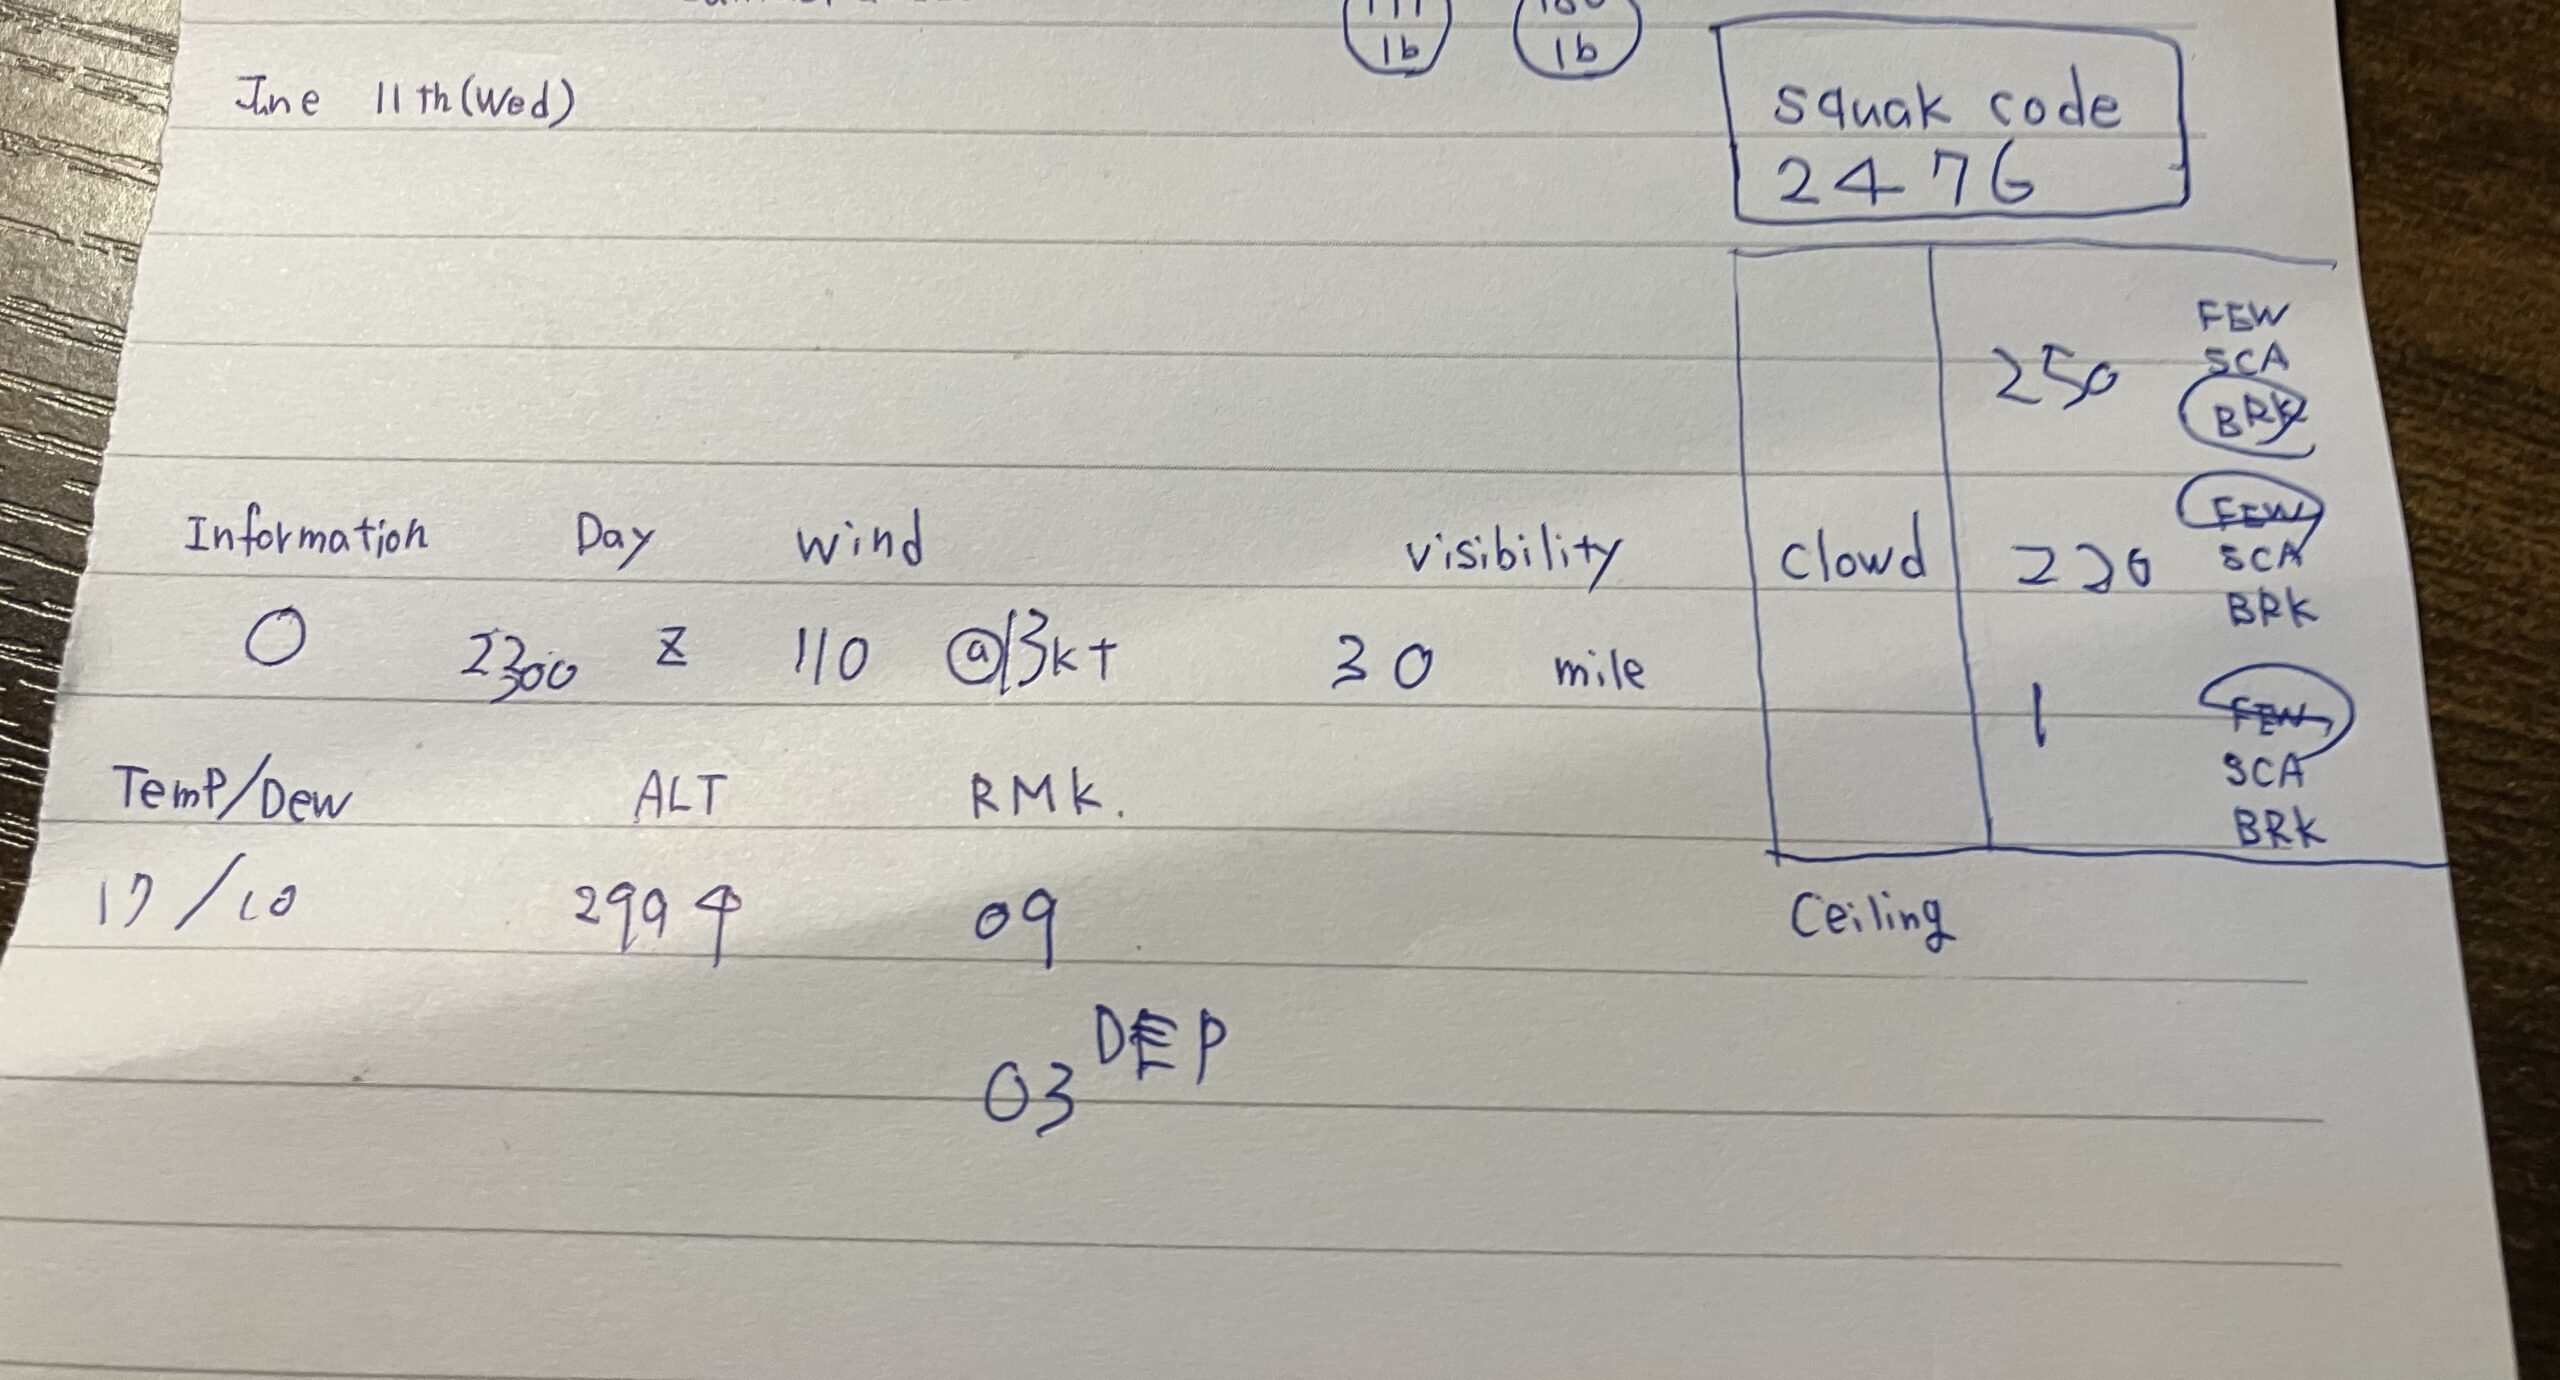 lb lb
June 11th (Wed)
squak code
2476
FEW
250 SCA
BRK
Information Day Wind visibility
FEW
clowd 220 SCA
BRK
O 2300 Z 110 @13kt 30 mile
1 FEW
SCA
BRK
Temp/Dew ALT RMK.
17/10 2994 09
Ceiling
03 DEP